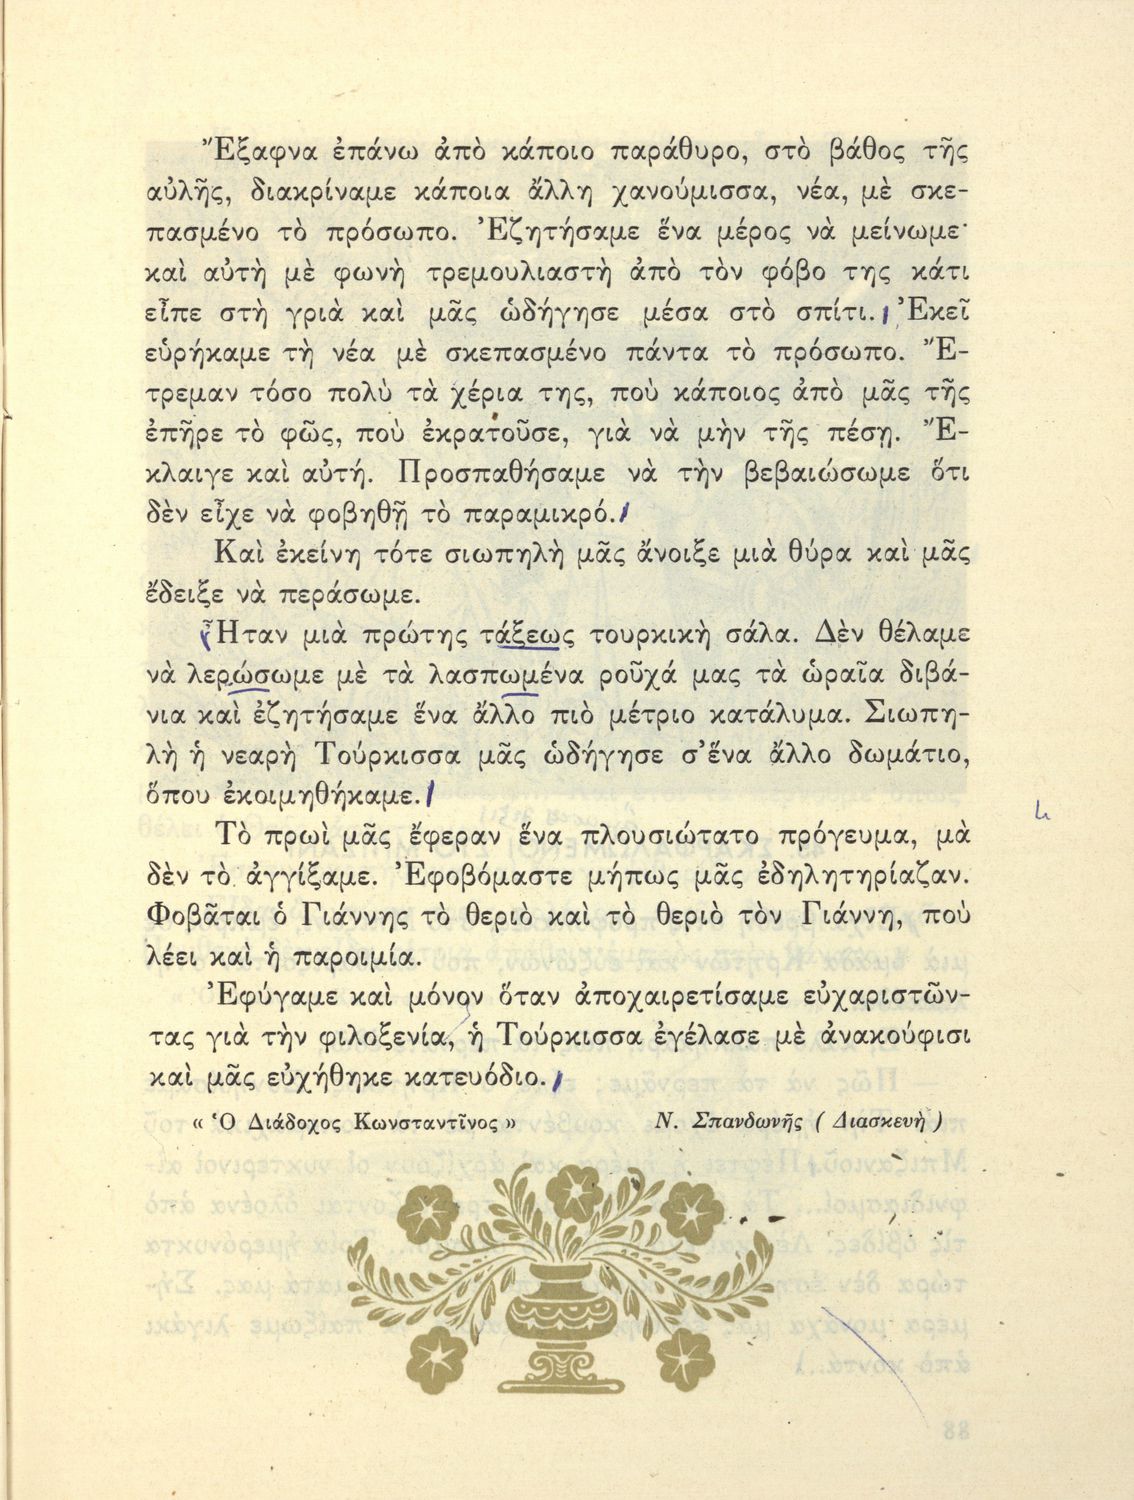 Ἔξαφνα ἐπάνω ἀπὸ κάποιο παράθυρο, στὸ βάθος τῆς
αὐλῆς, διακρίναμε κάποια ἄλλη χανούμισσα, νέα, μὲ σκε-
πασμένο τὸ πρόσωπο. Ἐζητήσαμε ἕνα μέρος νὰ μείνωμε·
καὶ αὐτὴ μὲ φωνὴ τρεμουλιαστὴ ἀπὸ τὸν φόβο της κάτι
εἶπε στὴ γριὰ καὶ μᾶς ὡδήγησε μέσα στὸ σπίτι. Ἐκεῖ
εὑρήκαμε τὴ νέα μὲ σκεπασμένο πάντα τὸ πρόσωπο. Ἔ-
τρεμαν τόσο πολὺ τὰ χέρια της, ποὺ κάποιος ἀπὸ μᾶς τῆς
ἐπῆρε τὸ φῶς, ποὺ ἐκρατοῦσε, γιὰ νὰ μὴν τῆς πέσῃ. Ἔ-
κλαιγε καὶ αὐτή. Προσπαθήσαμε νὰ τὴν βεβαιώσωμε ὅτι
δὲν εἶχε νὰ φοβηθῇ τὸ παραμικρό.
Καὶ ἐκείνη τότε σιωπηλὴ μᾶς ἄνοιξε μιὰ θύρα καὶ μᾶς
ἔδειξε νὰ περάσωμε.
Ἦταν μιὰ πρώτης τάξεως τουρκικὴ σάλα. Δὲν θέλαμε
νὰ λερώσωμε μὲ τὰ λασπωμένα ροῦχά μας τὰ ὡραῖα διβά-
νια καὶ ἐζητήσαμε ἕνα ἄλλο πιὸ μέτριο κατάλυμα. Σιωπη-
λὴ ἡ νεαρὴ Τούρκισσα μᾶς ὡδήγησε σ’ἕνα ἄλλο δωμάτιο,
ὅπου ἐκοιμηθήκαμε.
Τὸ πρωὶ μᾶς ἔφεραν ἕνα πλουσιώτατο πρόγευμα, μὰ
δὲν τὸ ἀγγίξαμε. Ἐφοβόμαστε μήπως μᾶς ἐδηλητηρίαζαν.
Φοβᾶται ὁ Γιάννης τὸ θεριὸ καὶ τὸ θεριὸ τὸν Γιάννη, ποὺ
λέει καὶ ἡ παροιμία.
Ἐφύγαμε καὶ μόνον ὅταν ἀποχαιρετίσαμε εὐχαριστῶν-
τας γιὰ τὴν φιλοξενία, ἡ Τούρκισσα ἐγέλασε μὲ ἀνακούφισι
καὶ μᾶς εὐχήθηκε κατευόδιο.
« Ὁ Διάδοχος Κωνσταντῖνος » Ν. Σπανδωνῆς ( Διασκευὴ )